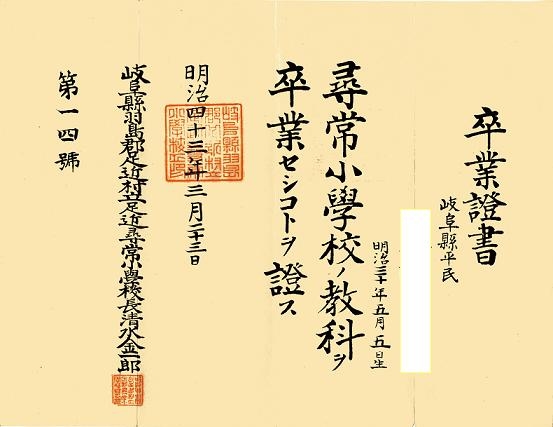 卒業證書
岐阜縣平民
明治三十年五月五日生
尋常小學校ノ教科ヲ
卒業セシコトヲ證ス
明治四十三年三月二十三日
岐阜縣羽島郡足近村立足近尋常小學校長清水金一郎
第一四號